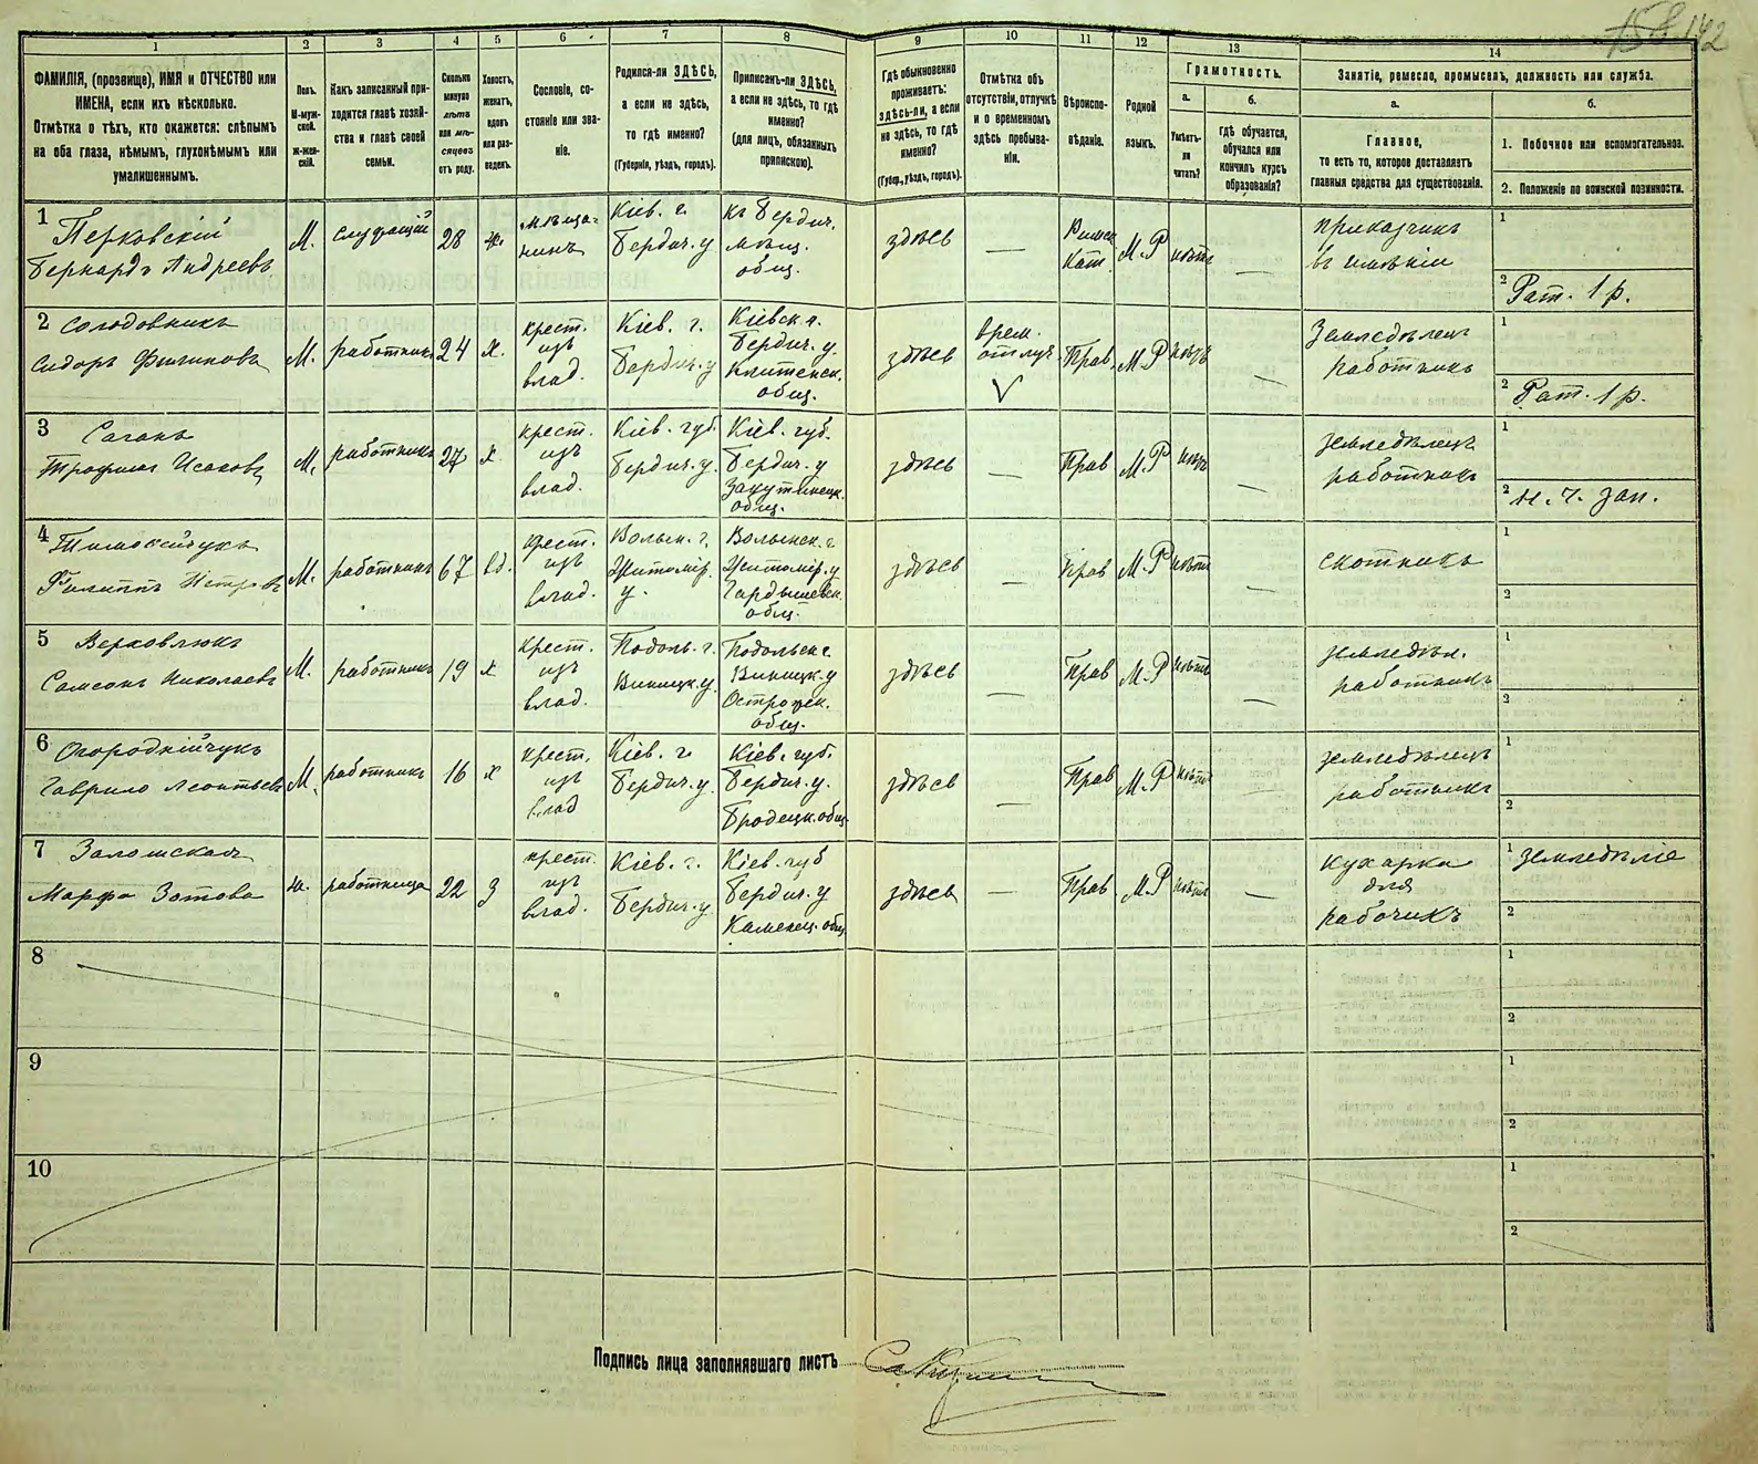 142
1
2
3
4
5
6
7
8
9
10
11
12
13
14
ФАМИЛІЯ, (прозвище), ИМЯ и ОТЧЕСТВО или
ИМЕНА, если ихъ нѣсколько.
Отмѣтка о тѣхъ, кто окажется: слѣпымъ
на оба глаза, нѣмымъ, глухонѣмымъ или
умалишеннымъ.
Полъ.
М-муж-
ской.
ж-жен-
скій.
Какъ записанный при-
ходится главѣ хозяй-
ства и главѣ своей
семьи.
Сколько
минуло
лѣтъ
или мѣ-
сяцевъ
отъ роду.
Холостъ,
женатъ,
вдовъ
или раз-
веденъ.
Сословіе, со-
стояніе или зва-
ніе.
Родился-ли ЗДѢСЬ,
а если не здѣсь,
то гдѣ именно?
(Губернія, уѣздъ, городъ).
Приписанъ-ли ЗДѢСЬ,
а если не здѣсь, то гдѣ
именно?
(для лицъ, обязанныхъ
припискою).
Гдѣ обыкновенно
проживаетъ:
здѣсь-ли, а если
не здѣсь, то гдѣ
именно?
(Губер., уѣздъ, городъ).
Отмѣтка объ
отсутствіи, отлучкѣ
и о временномъ
здѣсь пребыва-
ніи.
Вѣроиспо-
вѣданіе.
Родной
языкъ.
Грамотность.
а.
Умѣетъ-
ли
читать?
б.
гдѣ обучается,
обучался или
кончилъ курсъ
образованія?
Занятіе, ремесло, промыселъ, должность или служба.
а.
Главное,
то есть то, которое доставляетъ
главныя средства для существованія.
б.
1. Побочное или вспомогательное.
2. Положеніе по воинской повинности.
1 Перковскій
Бернардъ Андреевъ
М.
служащій
28
ж.
мѣща-
нинъ
Кіев. г.
Бердич. у
къ Бердич.
мѣщ.
общ.
здѣсь
—
Римск
Кат.
М.Р
нѣтъ
—
приказчикъ
въ имѣніи
1
2 Рат. 1 р.
2 Солодовникъ
Сидоръ Филиповъ
М.
работникъ
24
х.
крест.
изъ
влад.
Кіев. г.
Бердич. у
Кіевск. г.
Бердич. у.
Клитенск.
общ.
здѣсь
врем.
отлуч.
V
Прав.
М.Р
нѣтъ
—
Земледѣлецъ
работникъ
1
2 Рат. 1 р.
3 Саганъ
Трофимъ Исаковъ
М.
работникъ
27
х
крест.
изъ
влад.
Кіев. губ.
Бердич. у.
Кіев. губ.
Бердич. у
Закутинецк.
общ.
здѣсь
—
Прав
М.Р
нѣтъ
—
земледѣлецъ
работникъ
1
2 н. ч. зап.
4 Тимосійчукъ
Филиппъ Петровъ
М.
работникъ
67
вд.
крест.
изъ
влад.
Волын. г.
Житомір.
у.
Волынск. г
Житомір. у
Гардышевск.
общ.
здѣсь
—
Прав
М.Р
нѣтъ
—
скотникъ
1
2
5 Верховлюкъ
Самсонъ Николаевъ
М.
работникъ
19
х
крест.
изъ
влад.
Подоль. г.
Винницк. у.
Подольск. г.
Винницк. у
Острожск.
общ.
здѣсь
—
Прав
М.Р
нѣтъ
—
земледѣл.
работникъ
1
2
6 Огороднійчукъ
Гаврило Леонтьевъ
М.
работникъ
16
х
крест.
изъ
влад
Кіев. г.
Бердич. у.
Кіев. губ.
Бердич. у.
Бродецк. общ.
здѣсь
—
Прав
М.Р
нѣтъ
—
земледѣлецъ
работникъ
1
2
7
Марфа Зотова
ж.
работница
22
з
крест.
изъ
влад.
Кіев. г.
Бердич. у
Кіев. губ
Бердич. у
Каменец. общ
здѣсь
—
Прав.
М.Р
нѣтъ
—
кухарка
для
рабочихъ
1 земледѣліе
2
8
1
2
9
1
2
10
1
2
Подпись лица заполнявшаго листъ